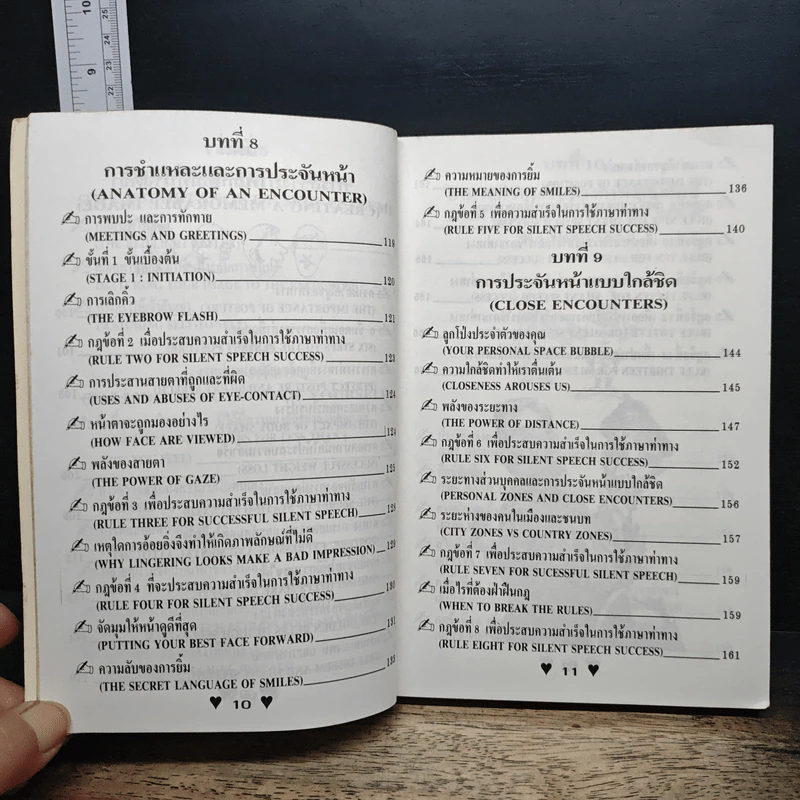 บทที่ 8
การชำแหละและการประจันหน้า
(ANATOMY OF AN ENCOUNTER)
✍ การพบปะ และการทักทาย
(MEETINGS AND GREETINGS) 119
✍ ขั้นที่ 1 ขั้นเบื้องต้น
(STAGE 1 : INITIATION) 120
✍ การเลิกคิ้ว
(THE EYEBROW FLASH) 121
✍ กฎข้อที่ 2 เมื่อประสบความสำเร็จในการใช้ภาษาท่าทาง
(RULE TWO FOR SILENT SPEECH SUCCESS) 123
✍ การประสานสายตาที่ถูกและที่ผิด
(USES AND ABUSES OF EYE-CONTACT) 124
✍ หน้าตาจะถูกมองอย่างไร
(HOW FACE ARE VIEWED) 124
✍ พลังของสายตา
(THE POWER OF GAZE) 125
✍ กฎข้อที่ 3 เพื่อประสบความสำเร็จในการใช้ภาษาท่าทาง
(RULE THREE FOR SUCCESSFUL SILENT SPEECH) 128
✍ เหตุใดการอ้อยอิ่งจึงทำให้เกิดภาพลักษณ์ที่ไม่ดี
(WHY LINGERING LOOKS MAKE A BAD IMPRESSION)
✍ กฎข้อที่ 4 ที่จะประสบความสำเร็จในการใช้ภาษาท่าทาง
(RULE FOUR FOR SILENT SPEECH SUCCESS) 130
✍ จัดมุมให้หน้าดูดีที่สุด
(PUTTING YOUR BEST FACE FORWARD) 131
✍ ความลับของการยิ้ม
(THE SECRET LANGUAGE OF SMILES)
♥ 10 ♥
✍ ความหมายของการยิ้ม
(THE MEANING OF SMILES) 136
✍ กฎข้อที่ 5 เพื่อความสำเร็จในการใช้ภาษาท่าทาง
(RULE FIVE FOR SILENT SPEECH SUCCESS) 140
บทที่ 9
การประจันหน้าแบบใกล้ชิด
(CLOSE ENCOUNTERS)
✍ ลูกโป่งประจำตัวของคุณ
(YOUR PERSONAL SPACE BUBBLE) 144
✍ ความใกล้ชิดทำให้เราตื่นเต้น
(CLOSENESS AROUSES US) 145
✍ พลังของระยะทาง
(THE POWER OF DISTANCE) 147
✍ กฎข้อที่ 6 เพื่อประสบความสำเร็จในการใช้ภาษาท่าทาง
(RULE SIX FOR SILENT SPEECH SUCCESS) 152
✍ ระยะทางส่วนบุคคลและการประจันหน้าแบบใกล้ชิด
(PERSONAL ZONES AND CLOSE ENCOUNTERS) 156
✍ ระยะห่างของคนในเมืองและชนบท
(CITY ZONES VS COUNTRY ZONES) 157
✍ กฎข้อที่ 7 เพื่อประสบความสำเร็จในการใช้ภาษาท่าทาง
(RULE SEVEN FOR SUCESSFUL SILENT SPEECH) 159
✍ เมื่อไรที่ต้องฝ่าฝืนกฎ
(WHEN TO BREAK THE RULES) 159
✍ กฎข้อที่ 8 เพื่อประสบความสำเร็จในการใช้ภาษาท่าทาง
(RULE EIGHT FOR SILENT SPEECH SUCCESS) 161
♥ 11 ♥